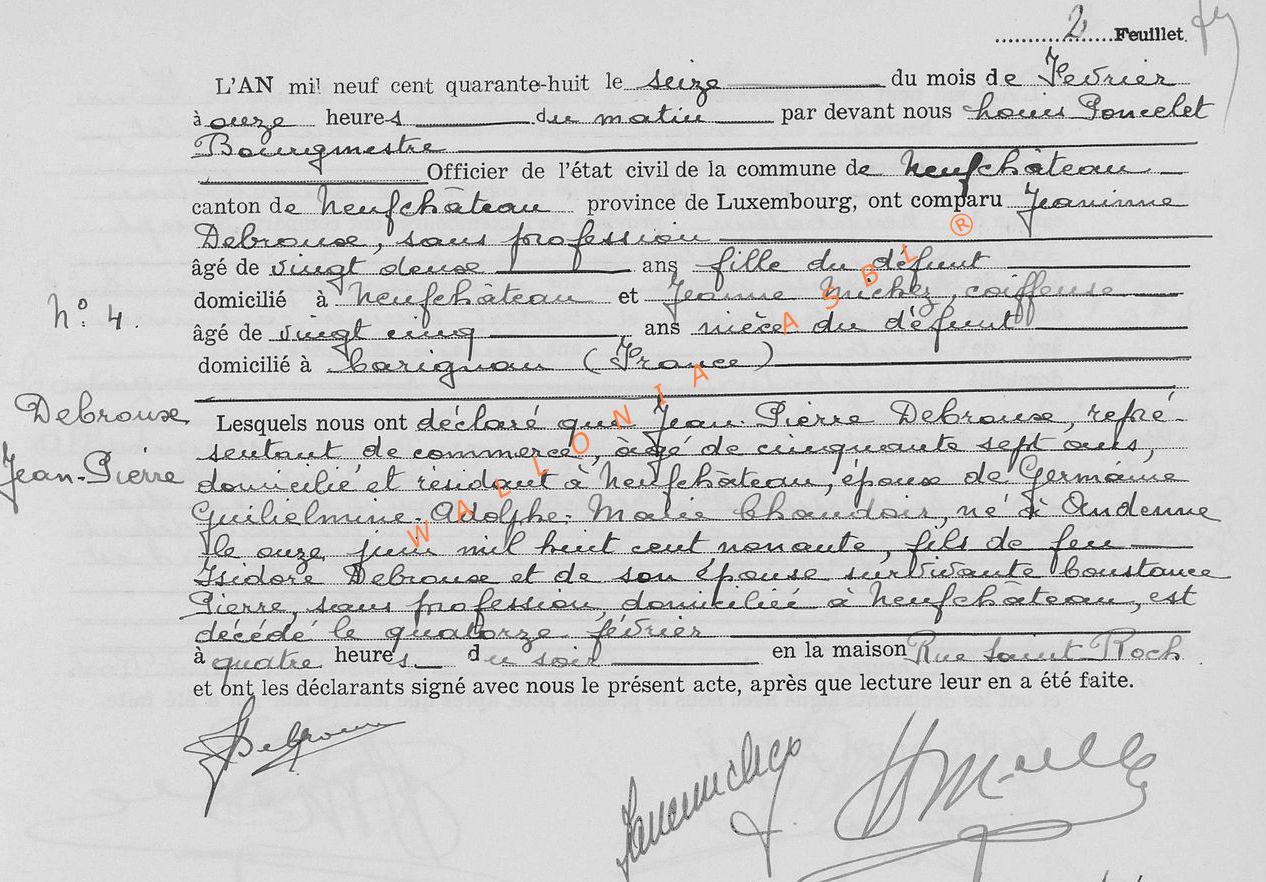 2 Feuillet
L'AN mil neuf cent quarante-huit le seize du mois de Février
à onze heures du matin par devant nous Louis Poncelet
Bourgmestre
Officier de l'état civil de la commune de Neufchâteau
canton de Neufchâteau province de Luxembourg, ont comparu Jeannine
Debroux, sans profession
âgé de vingt deux ans fille du défunt
domicilié à Neufchâteau et Jeanne Michez, coiffeuse
N° 4.
âgé de vingt cinq ans nièce du défunt
domicilié à Carignan (France)
Debroux
Jean-Pierre
Lesquels nous ont déclaré que Jean Pierre Debroux, repré-
sentant de commerce, âgé de cinquante sept ans,
domicilié et résidant à Neufchâteau, époux de Germaine
Guilielmine-Adolphe-Marie Chaudoir, né à Andenne
le onze juin mil huit cent nonante, fils de feu
Isidore Debroux et de son épouse survivante Constance
Pierre, sans profession, domiciliée à Neufchâteau, est
décédé le quatorze février
à quatre heures du soir en la maison Rue Saint Roch
et ont les déclarants signé avec nous le présent acte, après que lecture leur en a été faite.
JDebroux
WALLONIA ASBL ®